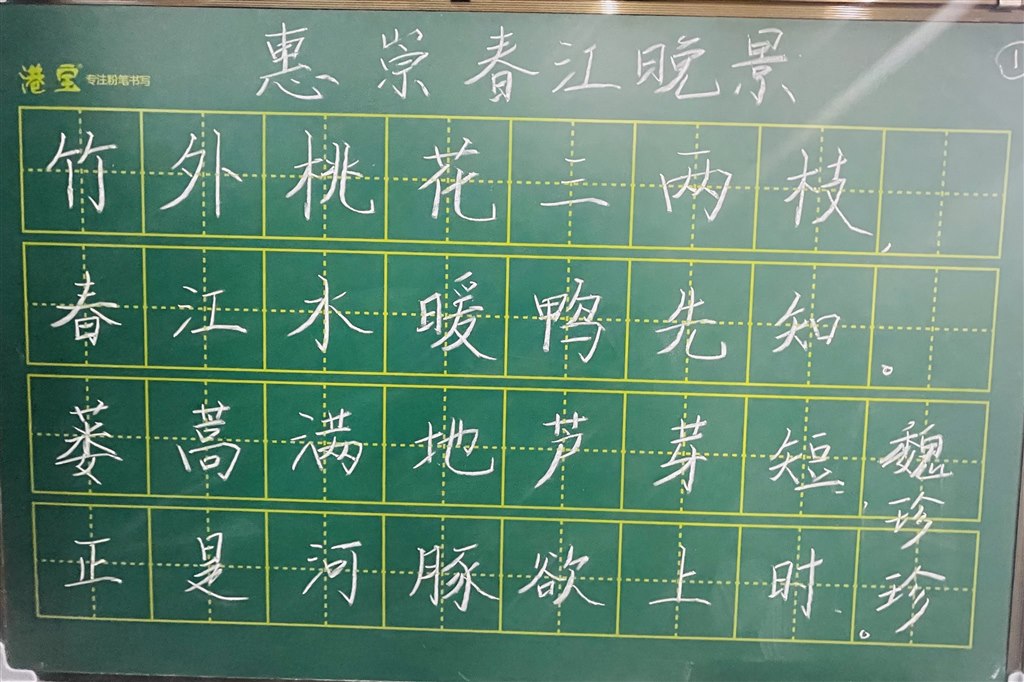 惠崇春江晚景
①
港宝 专注粉笔书写
竹外桃花三两枝,
春江水暖鸭先知。
蒌蒿满地芦芽短,
正是河豚欲上时。
魏珍珍